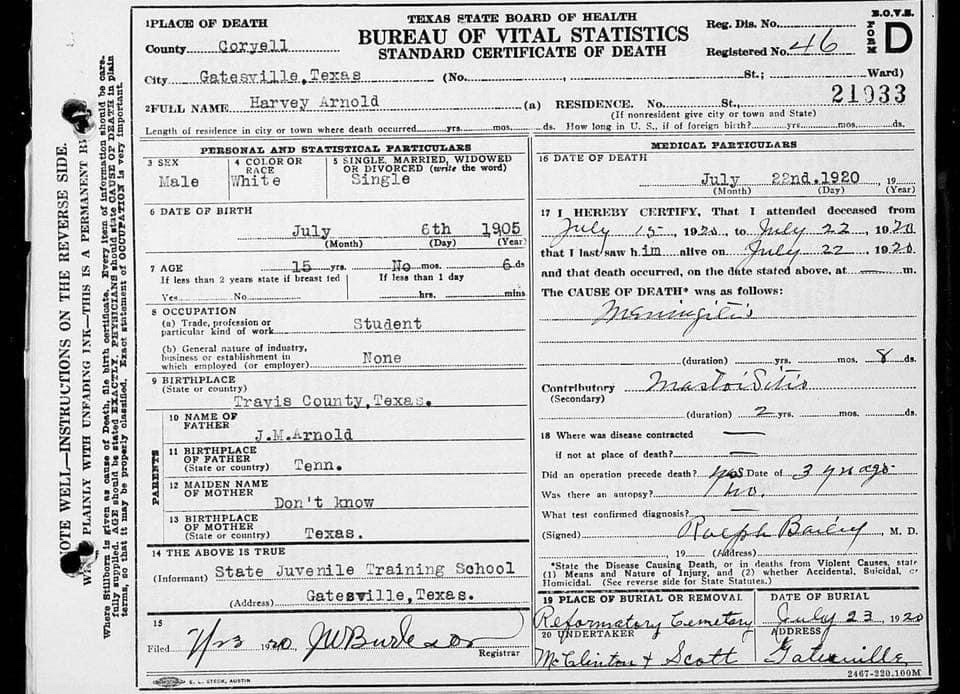 TEXAS STATE BOARD OF HEALTH
BUREAU OF VITAL STATISTICS
STANDARD CERTIFICATE OF DEATH
B.O.V.S.
FORM D
Reg. Dis. No.
Registered No. 46
1 PLACE OF DEATH
County Coryell
City Gatesville, Texas (No. , St.; Ward)
21933
2 FULL NAME Harvey Arnold (a) RESIDENCE. No. St.,
(If nonresident give city or town and State)
Length of residence in city or town where death occurred yrs. mos. ds. How long in U. S., if of foreign birth? yrs. mos. ds.
PERSONAL AND STATISTICAL PARTICULARS
3 SEX
Male
4 COLOR OR RACE
White
5 SINGLE, MARRIED, WIDOWED OR DIVORCED (write the word)
Single
6 DATE OF BIRTH
July 6th 1905
(Month) (Day) (Year)
7 AGE 15 yrs. No mos. 6 ds
If less than 2 years state if breast fed If less than 1 day
Yes No hrs. mins
8 OCCUPATION
(a) Trade, profession or
particular kind of work Student
(b) General nature of industry,
business or establishment in
which employed (or employer) None
9 BIRTHPLACE
(State or country)
Travis County, Texas.
PARENTS
10 NAME OF
FATHER
J.M.Arnold
11 BIRTHPLACE
OF FATHER
(State or country) Tenn.
12 MAIDEN NAME
OF MOTHER
Don't know
13 BIRTHPLACE
OF MOTHER
(State or country) Texas.
14 THE ABOVE IS TRUE
(Informant) State Juvenile Training School
(Address) Gatesville, Texas.
15
Filed 7/23 1920 J W Burleson
Registrar
E. L. STECK, AUSTIN
MEDICAL PARTICULARS
16 DATE OF DEATH
July 22nd, 1920 , 19
(Month) (Day) (Year)
17 I HEREBY CERTIFY, That I attended deceased from
July 15, 1920, to July 22, 1920
that I last saw him alive on July 22, 1920
and that death occurred, on the date stated above, at — m.
The CAUSE OF DEATH* was as follows:
Meningitis
(duration) yrs. mos. 8 ds
Contributory Mastoiditis
(Secondary)
(duration) 2 yrs. mos. ds.
18 Where was disease contracted —
if not at place of death? —
Did an operation precede death? yes Date of 3 yrs ago
Was there an autopsy? no.
What test confirmed diagnosis? —
(Signed) Ralph Bailey M. D.
, 19 (Address)
*State the Disease Causing Death, or in deaths from Violent Causes, state
(1) Means and Nature of Injury, and (2) whether Accidental, Suicidal, or
Homicidal. (See reverse side for State Statutes.)
19 PLACE OF BURIAL OR REMOVAL
Reformatory Cemetery
DATE OF BURIAL
July 23 1920
20 UNDERTAKER
McClinton & Scott
ADDRESS
Gatesville
2467-220.100M
NOTE WELL—INSTRUCTIONS ON THE REVERSE SIDE.
PLAINLY WITH UNFADING INK—THIS IS A PERMANENT
Where Stillborn is given as cause of Death, file birth certificate. Every item of information should be care-
fully supplied. AGE should be stated EXACTLY. PHYSICIANS should state CAUSE OF DEATH in plain
terms, so that it may be properly classified. Exact statement of OCCUPATION is very important.